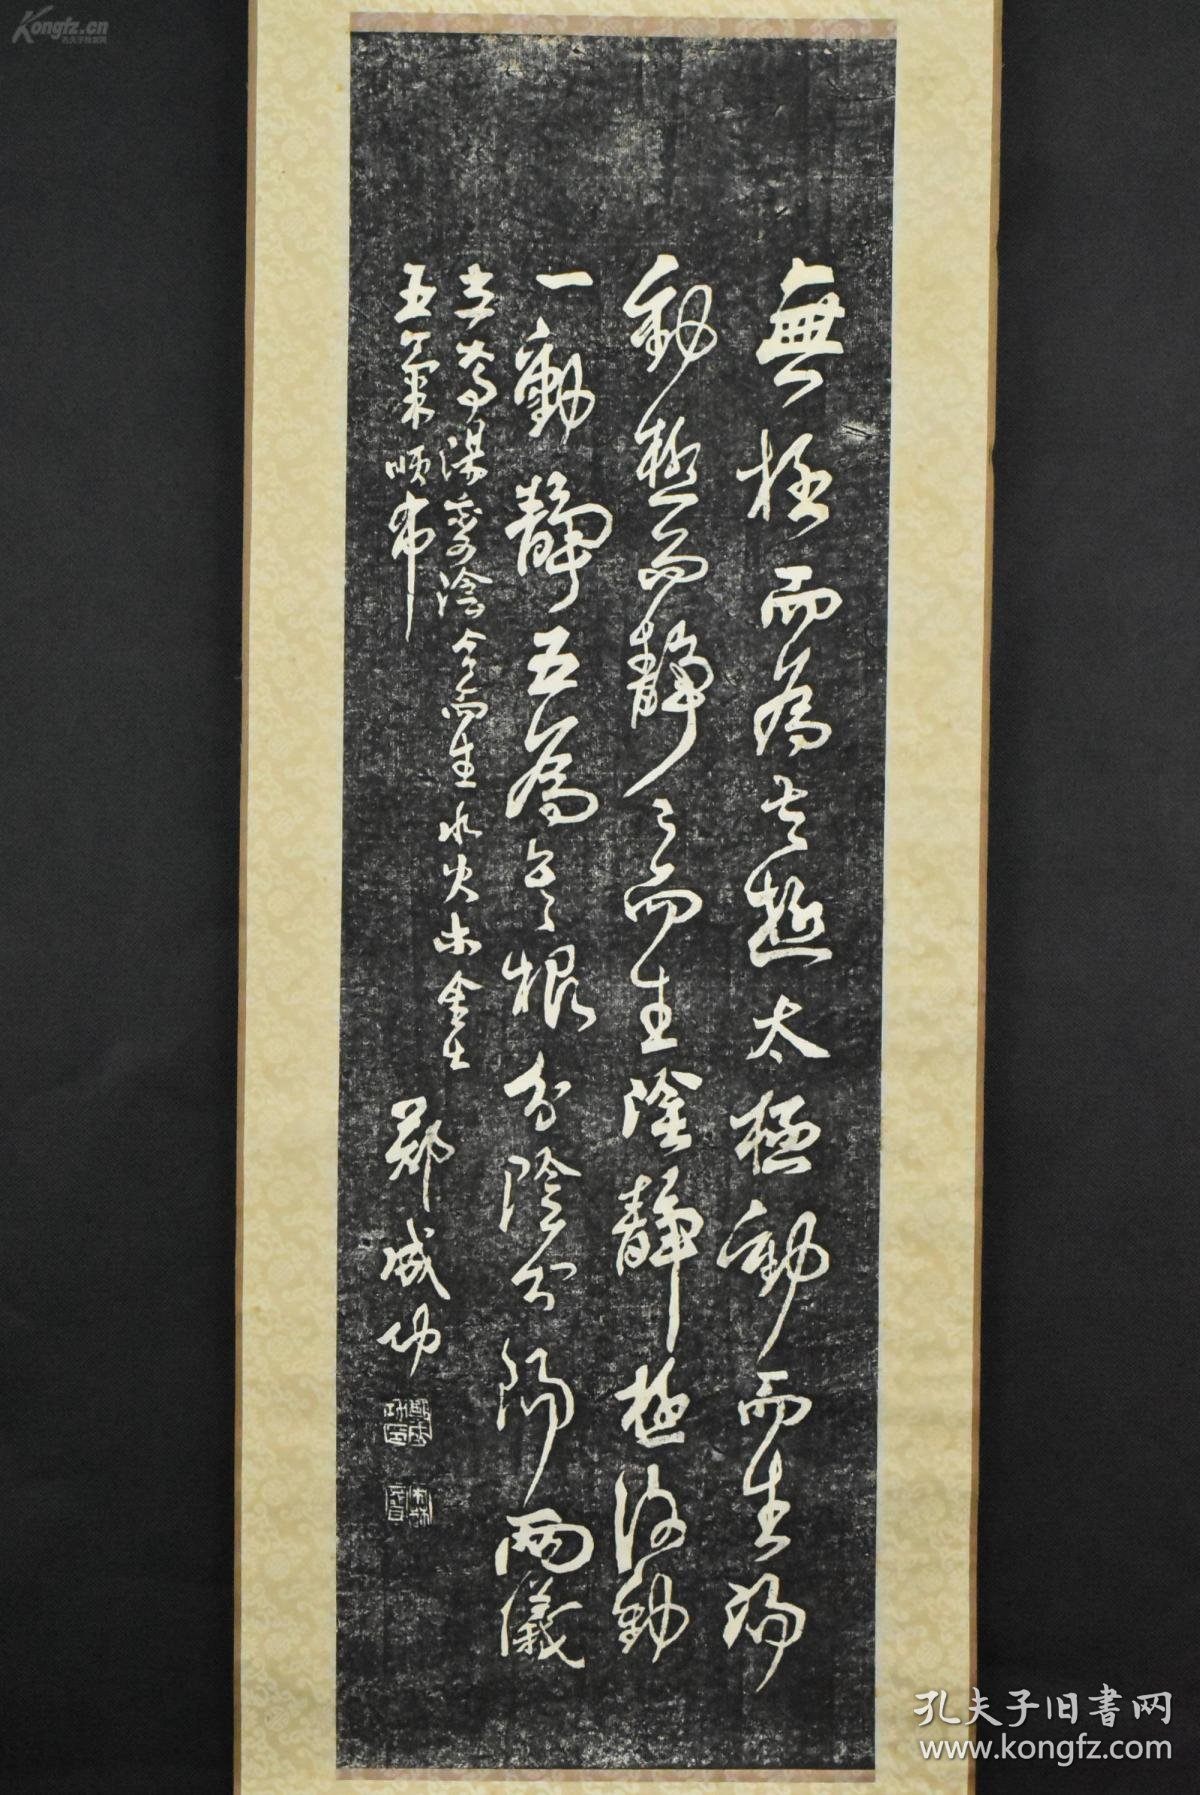 無極而為太極太極動而生陽
動極而靜靜而生陰靜極復動
一動靜互為其根分陰分陽兩儀
立焉陽變陰合而生水火木金土
五氣順布
鄭成功
Kongfz.cn
孔夫子旧书网
www.kongfz.com